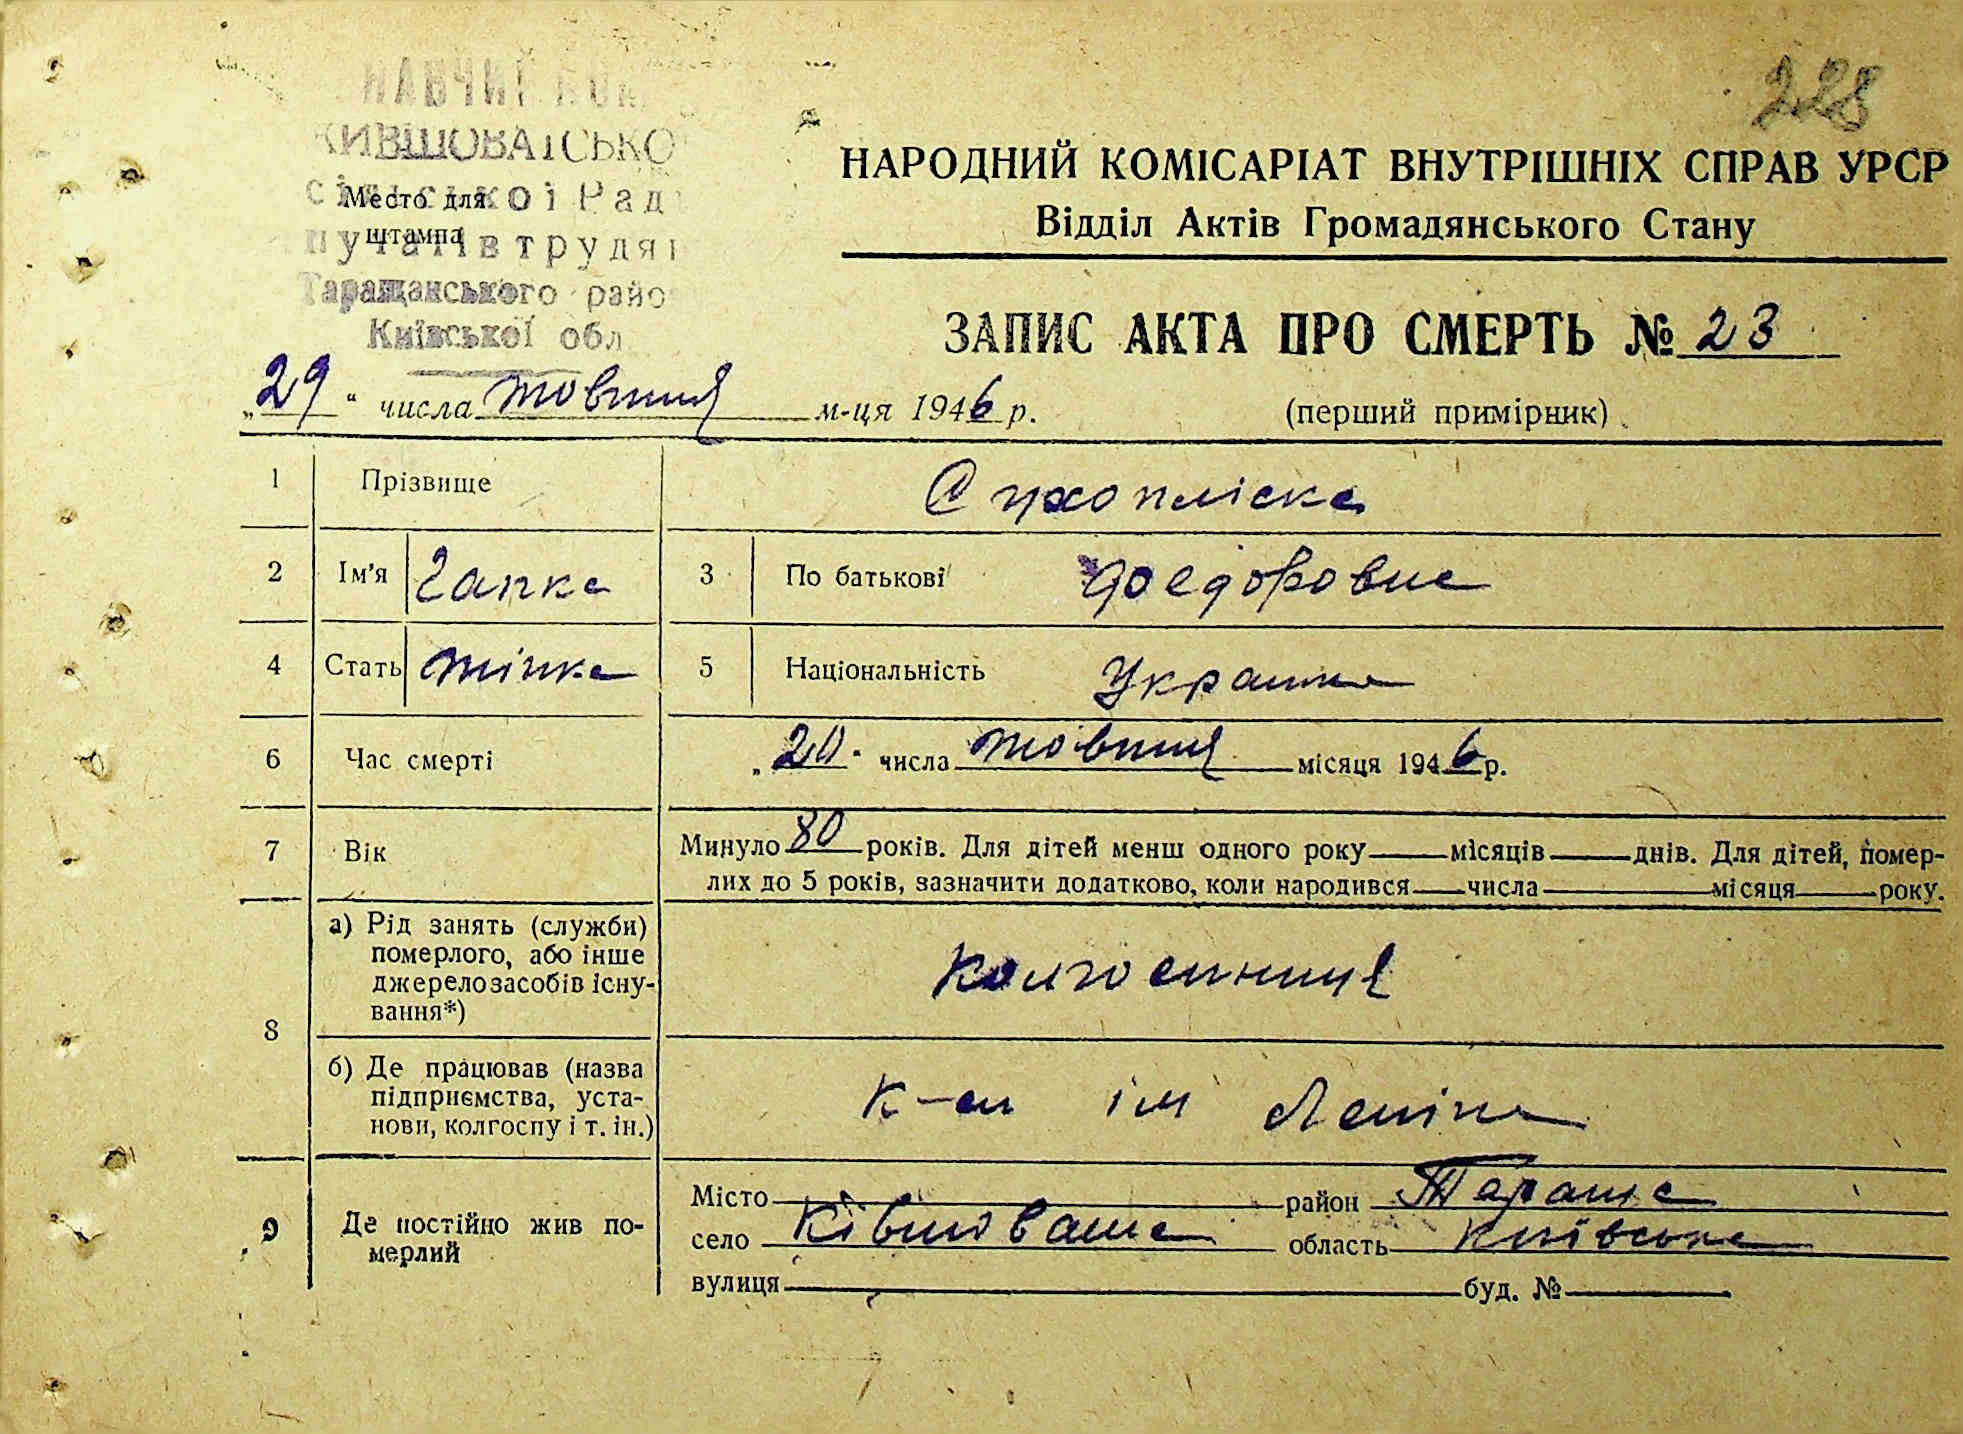 228
НАВЧИЙ КОМ
КИВШОВАТСЬКО
сільської Рад
Место для
штампа
путатів трудя
Таращанського райо
Київської обл
НАРОДНИЙ КОМІСАРІАТ ВНУТРІШНІХ СПРАВ УРСР
Відділ Актів Громадянського Стану
ЗАПИС АКТА ПРО СМЕРТЬ № 23
„29“ числа жовтня м-ця 1946 р.
(перший примірник)
1 Прізвище Сухопліска
2 Ім'я Гапка 3 По батькові Федоровна
4 Стать жінка 5 Національність Українка
6 Час смерті „20. числа жовтня місяця 1946 р.
7 Вік Минуло 80 років. Для дітей менш одного року місяців днів. Для дітей, помер-
лих до 5 років, зазначити додатково, коли народився числа місяця року.
8 а) Рід занять (служби)
померлого, або інше
джерело засобів існу-
вання*)
колгоспниця
б) Де працював (назва
підприємства, уста-
нови, колгоспу і т. ін.)
к-сп ім Леніна
9 Де постійно жив по-
мерлий
Місто район Тараща
село Ківшовата область Київська
вулиця буд. №